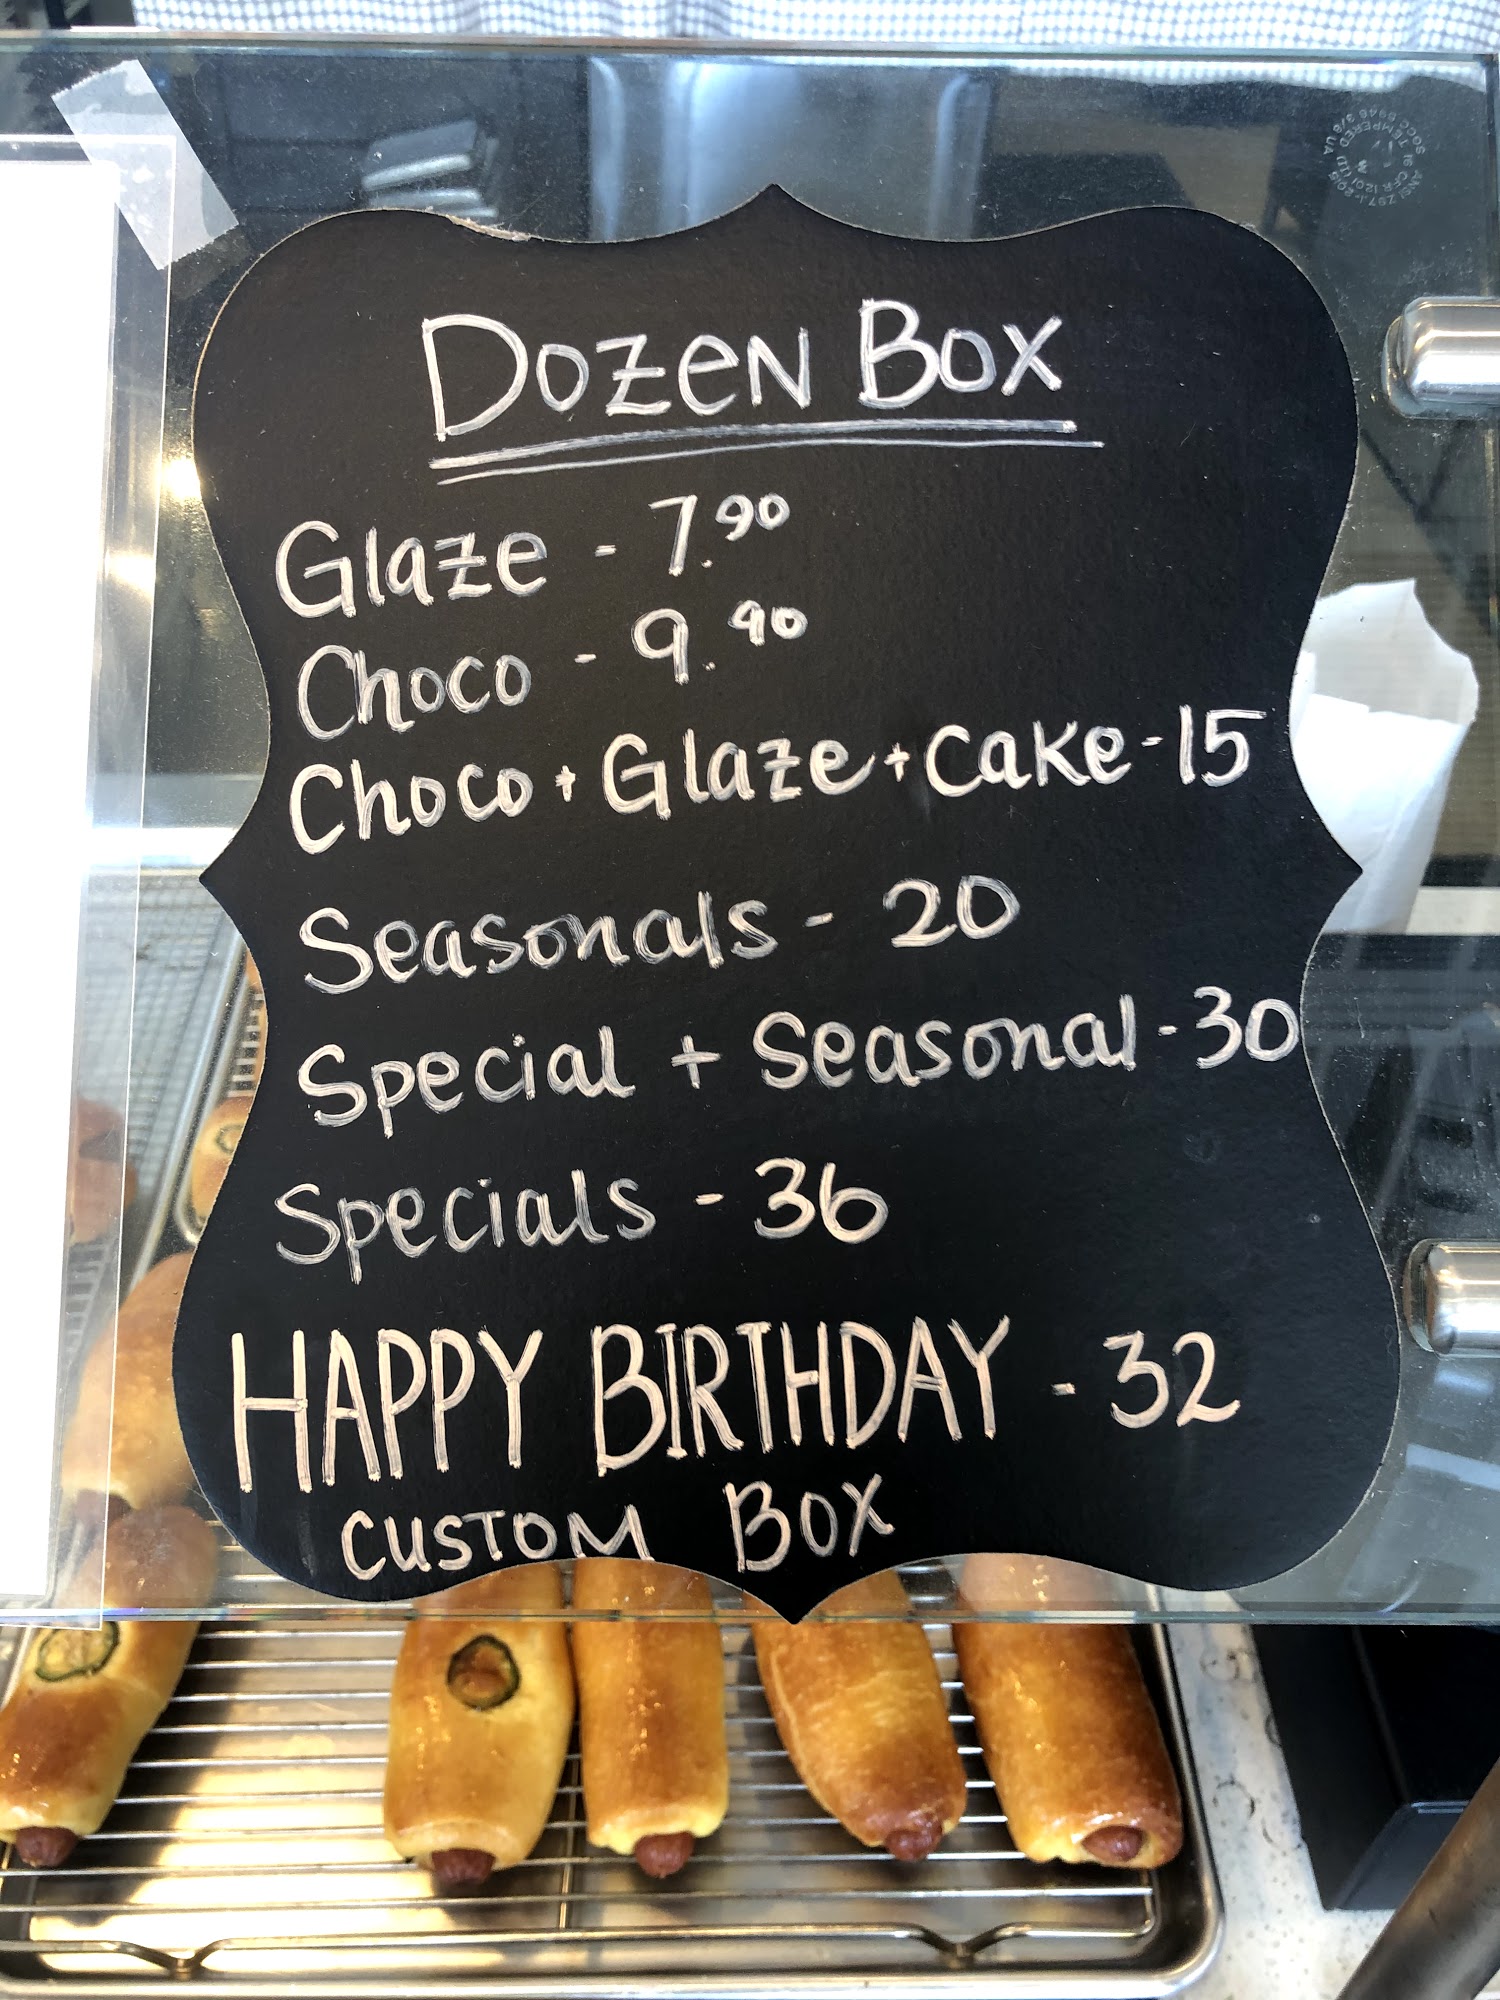 DOZEN BOX
Glaze - 7.90
Choco - 9.90
Choco + Glaze + Cake - 15
Seasonals - 20
Special + Seasonal - 30
Specials - 36
HAPPY BIRTHDAY - 32
CUSTOM BOX